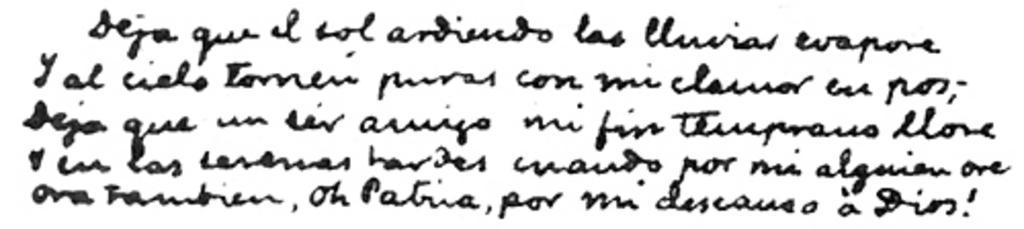 Deja que el sol ardiendo las lluvias evapore
Y al cielo tornen puras con mi clamor en pos,-
Deja que un sér amigo mi fin temprano llore
Y en las serenas tardes cuando por mi alguien ore
Ora tambien, Oh Patria, por mi descanso à Dios!